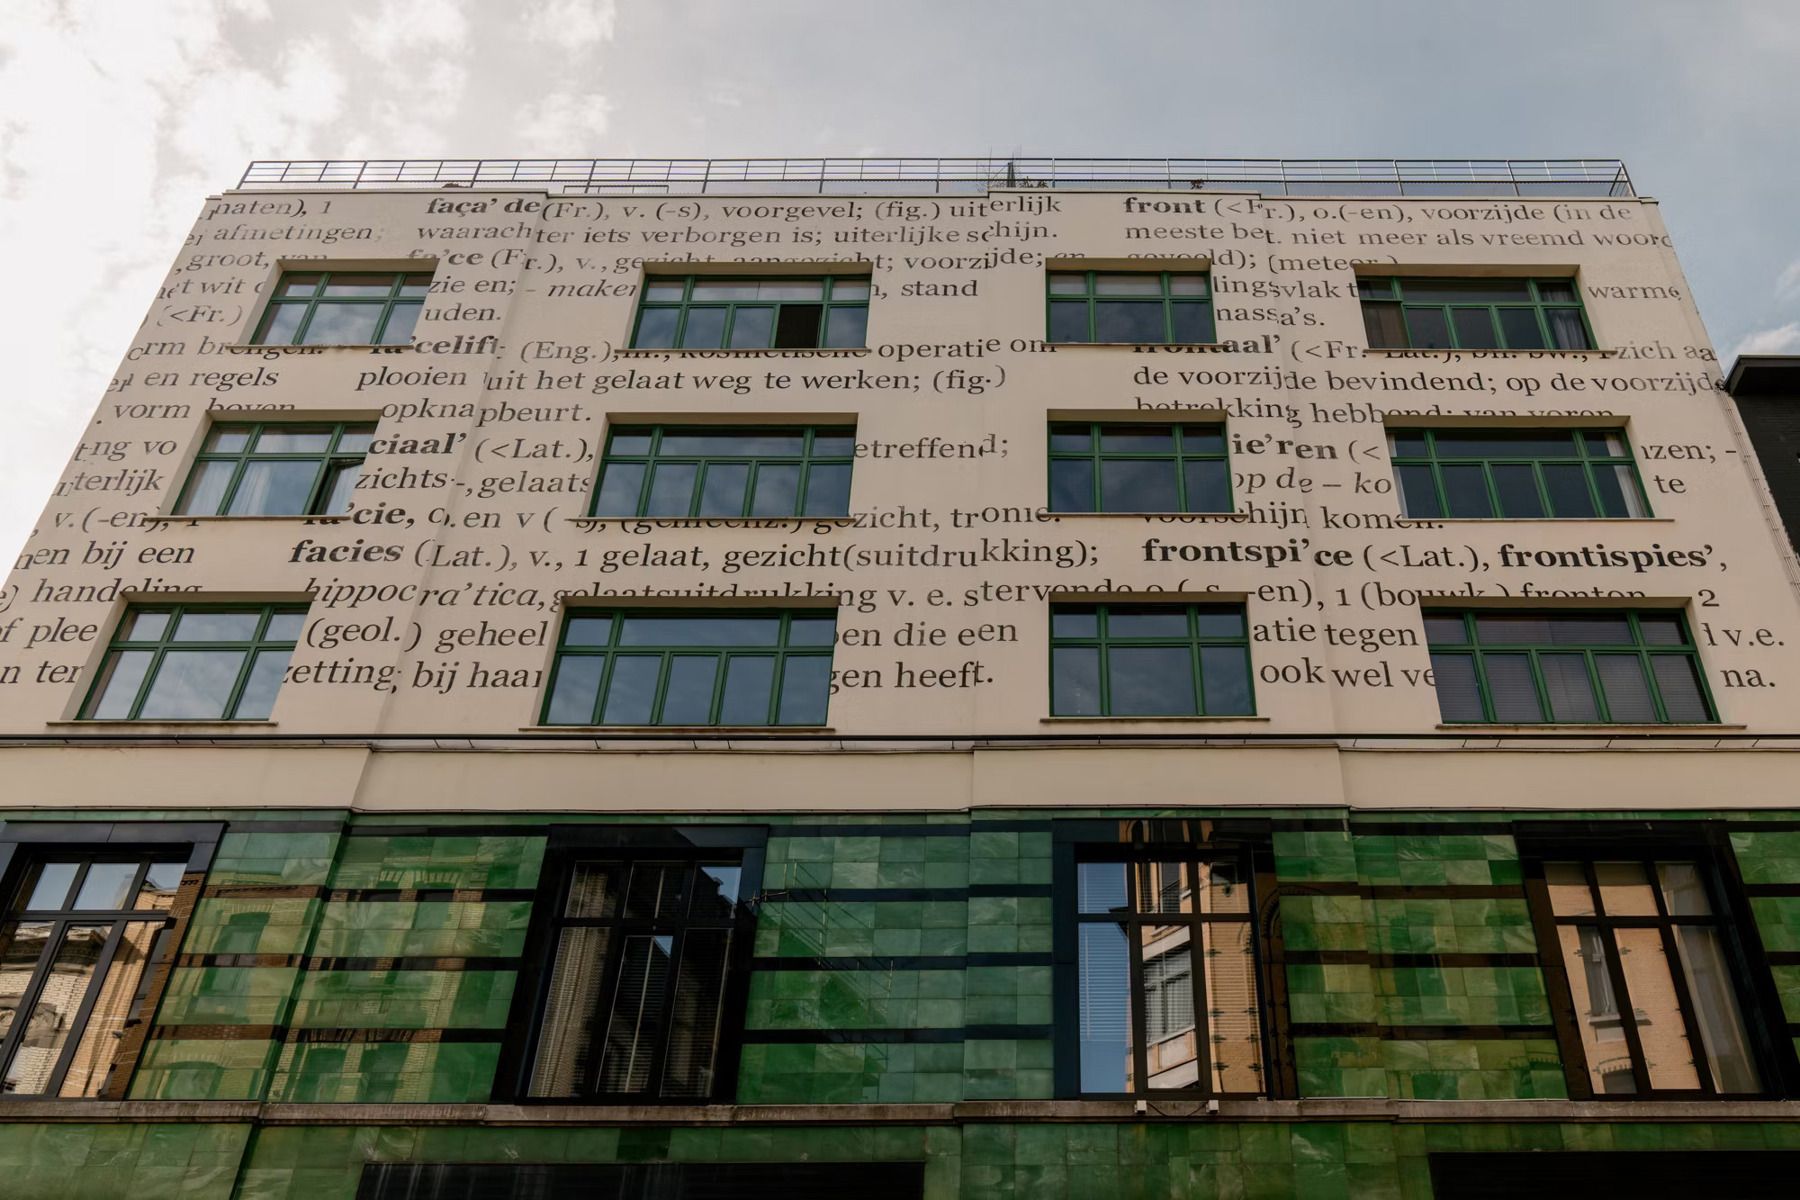 naten), 1
afmetingen;
groot, van
t wit
(<Fr.)
orm brengen.
en regels
vorm boven
ng vo
uiterlijk
, v. (-en), 1
en bij een
handeling
of plee
n ter
faça'de (Fr.), v. (-s), voorgevel; (fig.) uiterlijk
waarachter iets verborgen is; uiterlijke schijn.
fa'ce (Fr.), v., gezicht, aangezicht; voorzijde; en
zie en; - maken, stand
uden.
fa'celift (Eng.), m., kosmetische operatie om
plooien uit het gelaat weg te werken; (fig.)
opknapbeurt.
ciaal' (<Lat.), etreffend;
zichts-, gelaats
fa'cie, o. en v (-s), (gemeenz.) gezicht, tronie.
facies (Lat.), v., 1 gelaat, gezicht(suitdrukking);
hippocra'tica, gelaatsuitdrukking v. e. stervende
(geol.) geheel en die een
zetting; bij haar gen heeft.
front (<Fr.), o.(-en), voorzijde (in de
meeste bet. niet meer als vreemd woord
gevoeld); (meteor.)
lingsvlak t warme
massa's.
frontaal' (<Fr.-Lat.), bn. bw., zich aa
de voorzijde bevindend; op de voorzijde
betrekking hebbend; van voren
ie'ren (< nzen; -
op de – ko te
voorschijn komen.
frontspi'ce (<Lat.), frontispies',
o (-s, -en), 1 (bouwk.) fronton 2
atie tegen d v.e.
ook wel ve na.